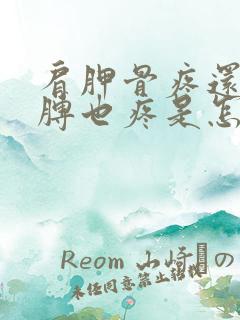 肩胛骨疼還
脾也疼是怎
Reom 山崎の
未任同意禁止轉載